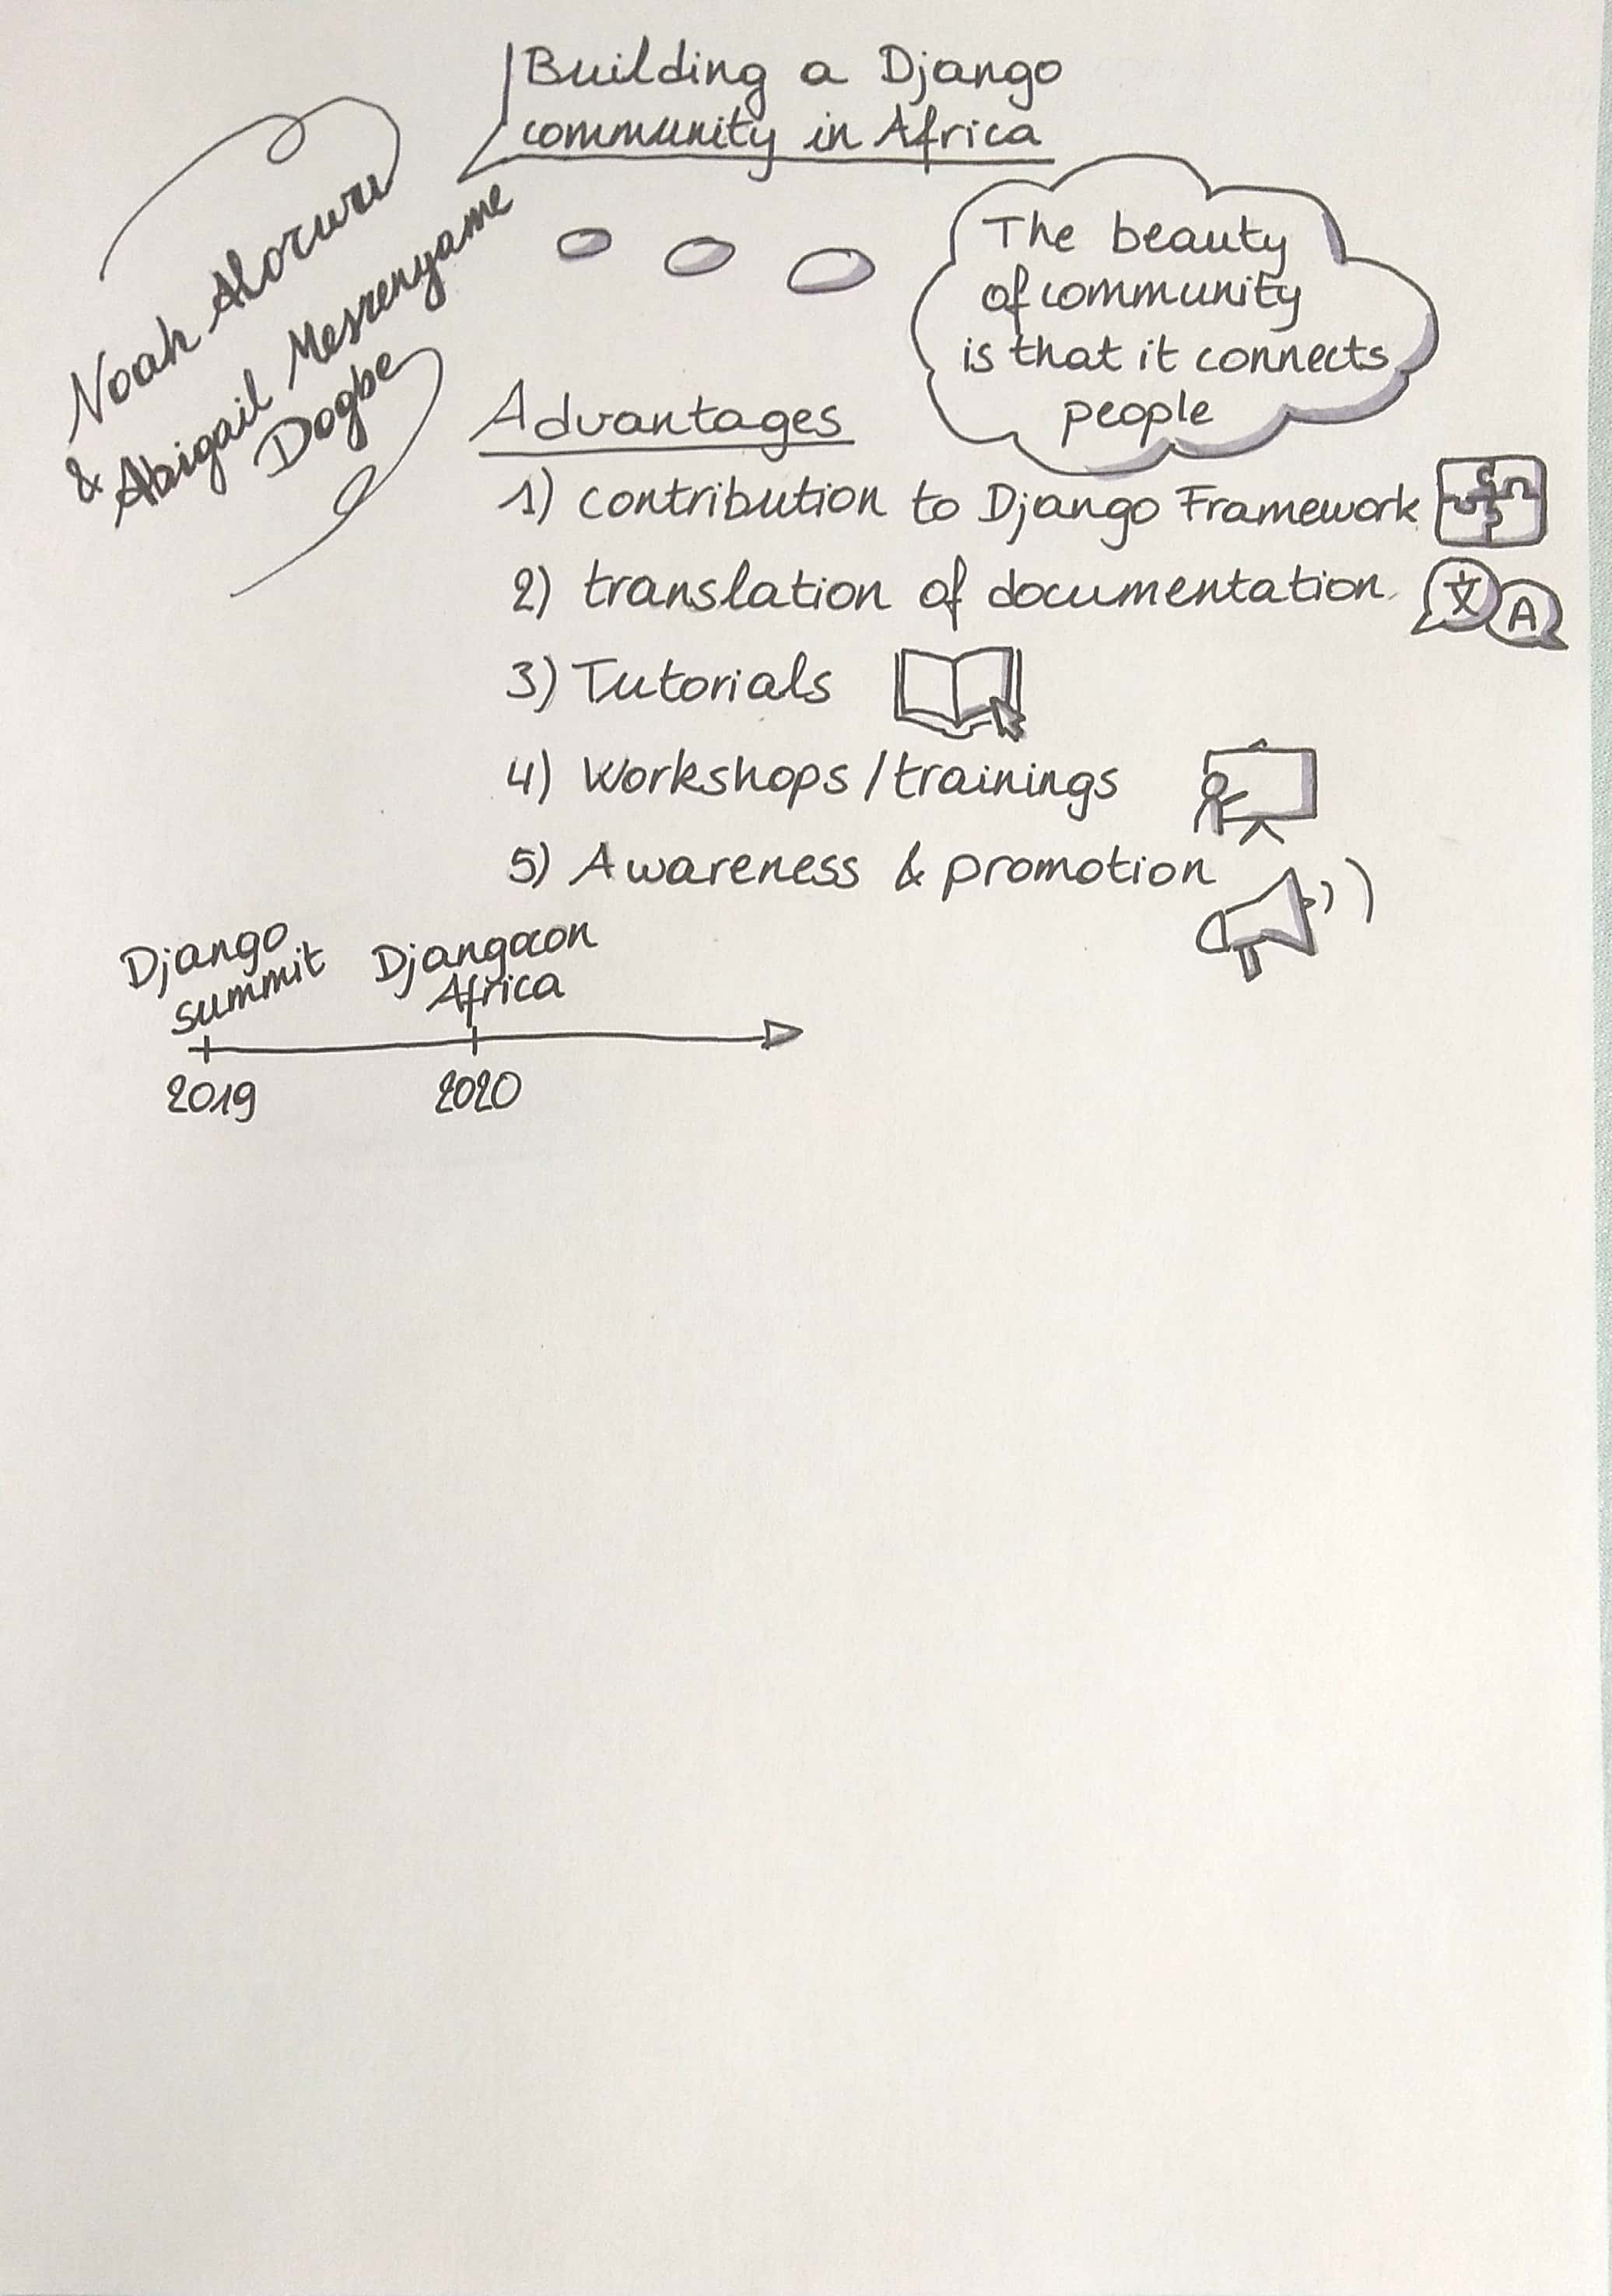 Building a Django
community in Africa
Noah Alorwu
& Abigail Mesrenyame
Dogbe
The beauty
of community
is that it connects
people
Advantages
1) contribution to Django Framework
2) translation of documentation
文 A
3) Tutorials
4) Workshops / trainings
5) Awareness & promotion
Django
summit
Djangocon
Africa
2019 2020